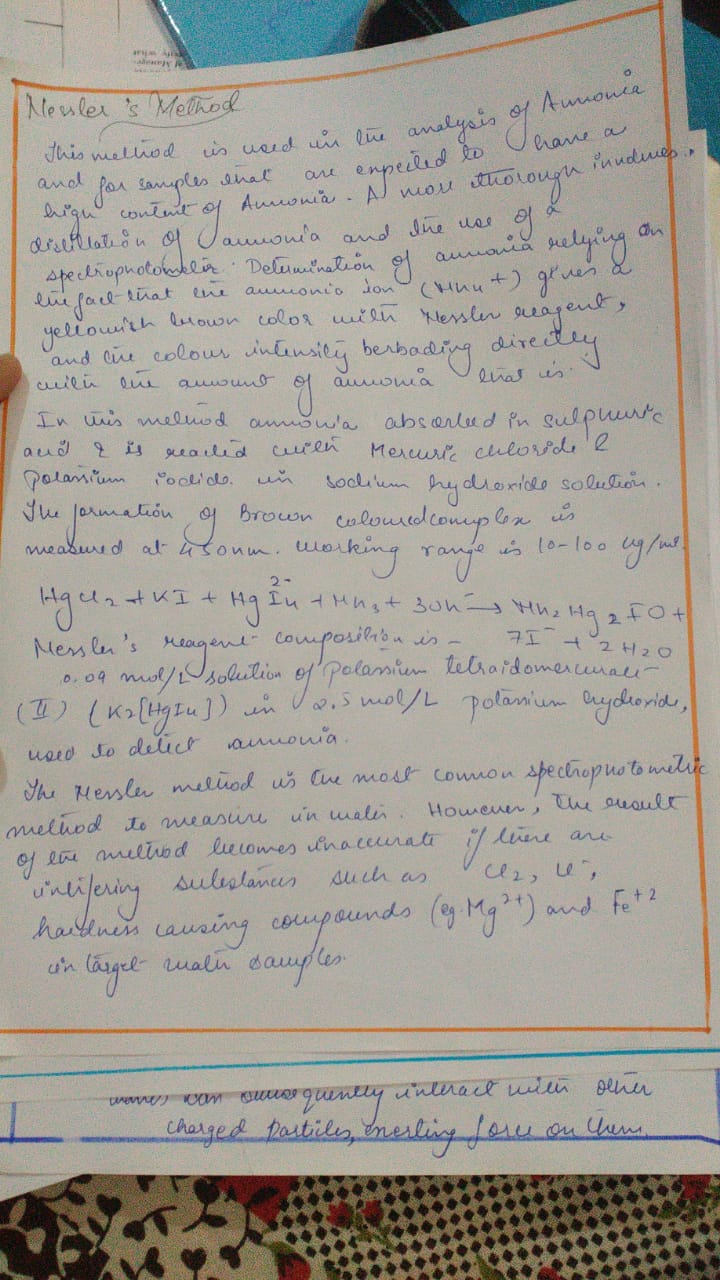 Nessler's Method
This method is used in the analysis of Ammonia
and for samples that are expected to have a
high content of Ammonia. A more thorough involves
distillation of ammonia and the use of a
spectrophotometer. Determination of ammonia relying on
the fact that the ammonia ion (NH4+) gives a
yellowish brown color with Nessler reagent,
and the colour intensity directly
with the amount of ammonia that is.
In this method ammonia absorbed in sulphuric
acid & is reacted with Mercuric chloride &
Potassium iodide in sodium hydroxide solution.
The formation of Brown coloured complex is
measured at 450nm. Working range is 10-100 ug/ml.
HgCl2 + KI + HgI4 2- + NH3 + 3OH- → NH2Hg2IO +
7I- + 2H2O
Nessler's reagent composition is -
0.09 mol/L solution of Potassium tetraidomercurate
(II) (K2[HgI4]) in 2.5 mol/L potassium hydroxide,
used to detect ammonia.
The Nessler method is the most common spectrophotometric
method to measure in water. However, the result
of the method becomes inaccurate if there are
intefering substances such as Cl2, Cl-,
hardness causing compounds (eg. Mg2+) and Fe+2
in target water samples.
can subsequently interact with other
charged particles, exerting force on them.